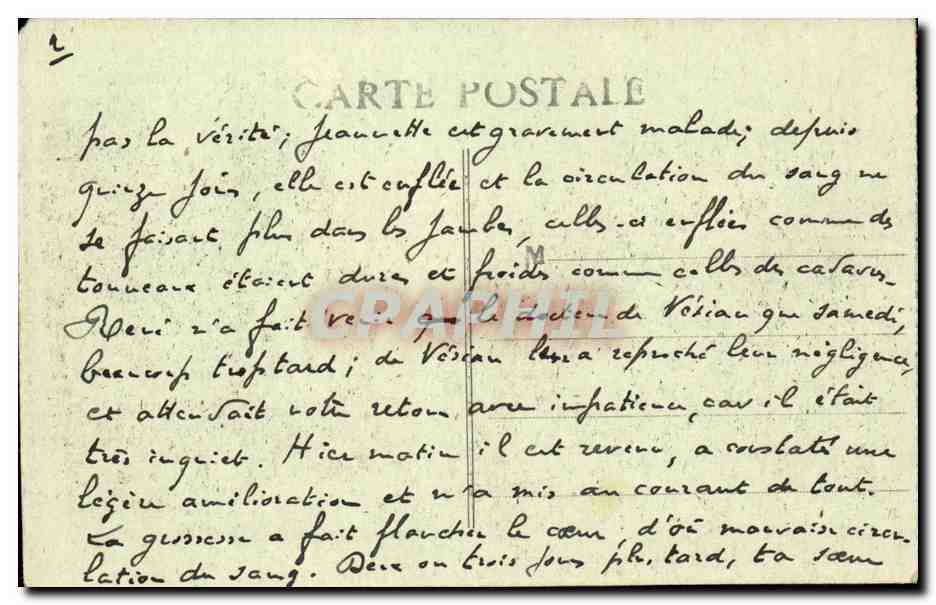 2
CARTE POSTALE
pas la vérité; Jeannette est gravement malade; depuis
quinze jours, elle est enflée et la circulation du sang ne
se faisant plus dans les jambes, celles-ci enflées comme des
tonneaux étaient dures et froides comme celles des cadavres.
M
René n'a fait venir le docteur de Vésian que samedi,
GRAPHIL
beaucoup trop tard; de Vésian leur a reproché leur négligence,
et attendait notre retour avec impatience, car il était
très inquiet. Hier matin il est revenu, a constaté une
légère amélioration et m'a mis au courant de tout.
La grossesse a fait flancher le cœur, d'où mauvaise circu-
lation du sang. Deux ou trois jours plus tard, ta sœur